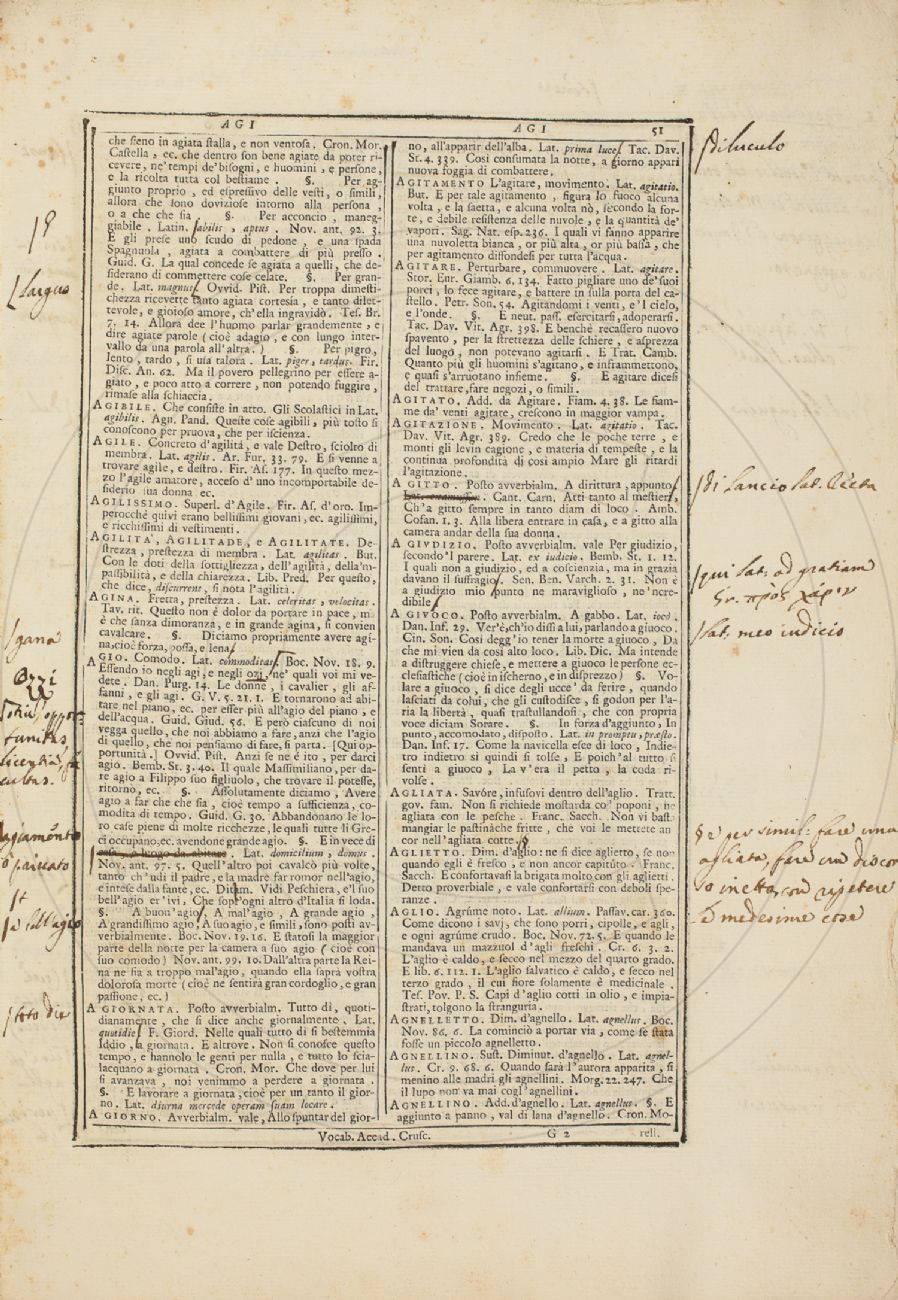 AGI
AGI 51
che sieno in agiata stalla, e non ventosa. Cron. Mor.
Castella, ec. che dentro son bene agiate da poter ri-
cevere, ne' tempi de' bisogni, e huomini, e persone,
e la ricolta tutta col bestiame. §. Per ag-
giunto proprio, ed espressivo delle vesti, o simili,
allora che sono doviziose intorno alla persona,
o a che che sia. §. Per acconcio, maneg-
giabile. Latin. habilis, aptus. Nov. ant. 92. 3.
E gli prese uno scudo di pedone, e una spada
Spagnuola, agiata a combattere di più presso.
Guid. G. La qual concede se agiata a quelli, che de-
siderano di commettere cose celate. §. Per gran-
de. Lat. magnus. Ovvid. Pist. Per troppa dimesti-
chezza ricevette tanto agiata cortesia, e tanto dilet-
tevole, e gioioso amore, ch'ella ingravidò. Tes. Br.
7. 14. Allora dee l'huomo parlar grandemente, e
dire agiate parole (cioè adagio, e con lungo inter-
vallo da una parola all'altra.) §. Per pigro,
lento, tardo, si usa talora. Lat. piger, tardus. Fir.
Disc. An. 62. Ma il povero pellegrino per essere a-
giato, e poco atto a correre, non potendo fuggire,
rimase alla schiaccia.
AGIBILE. Che consiste in atto. Gli Scolastici in Lat.
agibilis. Agn. Pand. Queste cose agibili, più tosto si
conoscono per pruova, che per iscienza.
AGILE. Concreto d'agilità, e vale Destro, sciolto di
membra. Lat. agilis. Ar. Fur. 33. 79. E si venne a
trovare agile, e destro. Fir. As. 177. In questo mez-
zo l'agile amatore, acceso d'uno incomportabile de-
siderio sua donna ec.
AGILISSIMO. Superl. d'Agile. Fir. As. d'oro. Im-
perocchè quivi erano bellissimi giovani, ec. agilissimi,
e ricchissimi di vestimenti.
AGILITA', AGILITADE, e AGILITATE. De-
strezza, prestezza di membra. Lat. agilitas. But.
Con le doti della sottigliezza, dell'agilità, della'm-
passibilità, e della chiarezza. Lib. Pred. Per questo,
che dice, discurrent, si nota l'agilità.
AGINA. Fretta, prestezza. Lat. celeritas, velocitas.
Tav. rit. Questo non è dolor da portare in pace, ma
è che sanza dimoranza, e in grande agina, si convien
cavalcare. §. Diciamo propriamente avere agi-
na, cioè forza, possa, e lena.
AGIO. Comodo. Lat. commoditas. Boc. Nov. 18. 9.
Essendo io negli agi, e negli ozj, ne' quali voi mi ve-
dete. Dan. Purg. 14. Le donne, i cavalier, gli af-
fanni, e gli agi. G. V. 5. 21. 1. E tornarono ad abi-
tare nel piano, ec. per esser più all'agio del piano, e
dell'acqua. Guid. Giud. 56. E però ciascuno di noi
vegga quello, che noi abbiamo a fare, anzi che l'agio
di quello, che noi pensiamo di fare, si parta. [Qui op-
portunità.] Ovvid. Pist. Anzi se ne è ito, per darci
agio. Bemb. St. 3. 40. Il quale Massimiliano, per da-
re agio a Filippo suo figliuolo, che trovare il potesse,
ritorno, ec. §. Assolutamente diciamo, Avere
agio a far che che sia, cioè tempo a sufficienza, co-
modità di tempo. Guid. G. 30. Abbandonano le lo-
ro case piene di molte ricchezze, le quali tutte li Gre-
ci occupano, ec. avendone grande agio. §. E in vece di
casa, o luogo da abitare. Lat. domicilium, domus.
Nov. ant. 97. 5. Quell'altro poi cavalcò più volte,
tanto ch'udì il padre, e la madre far romor nell'agio,
e intese dalla fante, ec. Dittam. Vidi Peschiera, e'l suo
bell'agio er'ivi, Che sopr'ogni altro d'Italia si loda.
§. A buon'agio, A mal'agio, A grande agio,
A grandissimo agio, A suo agio, e simili, sono posti av-
verbialmente. Boc. Nov. 19. 16. E statosi la maggior
parte della notte per la camera a suo agio (cioè con
suo comodo) Nov. ant. 99. 10. Dall'altra parte la Rei-
na ne sia a troppo mal'agio, quando ella saprà vostra
dolorosa morte (cioè ne sentirà gran cordoglio, e gran
passione, ec.)
A GIORNATA. Posto avverbialm. Tutto dì, quoti-
dianamente, che si dice anche giornalmente. Lat.
quotidie. F. Giord. Nelle quali tutto dì si bestemmia
Iddio, a giornata. E altrove. Non si conosce questo
tempo, e hannolo le genti per nulla, e tutto lo scia-
lacquano a giornata. Cron. Mor. Che dove per lui
si avanzava, noi venimmo a perdere a giornata.
§. E lavorare a giornata, cioè per un tanto il gior-
no. Lat. diurna mercede operam suam locare.
A GIORNO. Avverbialm. vale, Allo spuntar del gior-
no, all'apparir dell'alba. Lat. prima luce. Tac. Dav.
St. 4. 339. Così consumata la notte, a giorno apparì
nuova foggia di combattere.
AGITAMENTO L'agitare, movimento. Lat. agitatio.
But. E per tale agitamento, figura lo fuoco alcuna
volta, e la saetta, e alcuna volta nò, secondo la for-
te, e debile resistenza delle nuvole, e la quantità de'
vapori. Sag. Nat. esp. 236. I quali vi fanno apparire
una nuvoletta bianca, or più alta, or più bassa, che
per agitamento diffondesi per tutta l'acqua.
AGITARE. Perturbare, commuovere. Lat. agitare.
Stor. Eur. Giamb. 6. 134. Fatto pigliare uno de' suoi
porci, lo fece agitare, e battere in sulla porta del ca-
stello. Petr. Son. 54. Agitandomi i venti, e'l cielo,
e l'onde. §. E neut. pass. esercitarsi, adoperarsi.
Tac. Dav. Vit. Agr. 398. E benchè recassero nuovo
spavento, per la strettezza delle schiere, e asprezza
del luogo, non potevano agitarsi. E Trat. Camb.
Quanto più gli huomini s'agitano, e inframmettono,
e quasi s'arruotano insieme. §. E agitare dicesi
del trattare, fare negozi, o simili.
AGITATO. Add. da Agitare. Fiam. 4. 38. Le fiam-
me da' venti agitate, crescono in maggior vampa.
AGITAZIONE. Movimento. Lat. agitatio. Tac.
Dav. Vit. Agr. 389. Credo che le poche terre, e
monti gli levin cagione, e materia di tempeste, e la
continua profondità di così ampio Mare gli ritardi
l'agitazione.
A GITTO. Posto avverbialm. A dirittura, appunto.
Lat. examussim. Cant. Carn. Atti tanto al mestieri,
Ch'a gitto sempre in tanto diam di loco. Amb.
Cofan. 1. 3. Alla libera entrare in casa, e a gitto alla
camera andar della sua donna.
A GIUDIZIO. Posto avverbialm. vale Per giudizio,
secondo'l parere. Lat. ex iudicio. Bemb. St. 1. 12.
I quali non a giudizio, ed a coscienzia, ma in grazia
davano il suffragio. Sen. Ben. Varch. 2. 31. Non è
a giudizio mio punto ne maraviglioso, ne 'ncre-
dibile.
A GIVOCO. Posto avverbialm. A gabbo. Lat. ioco.
Dan. Inf. 29. Ver'è, ch'io dissi a lui, parlando a giuoco.
Cin. Son. Così degg'io tener la morte a giuoco, Da
che mi vien da così alto loco. Lib. Dic. Ma intende
a distruggere chiese, e mettere a giuoco le persone ec-
clesiastiche (cioè in ischerno, e in disprezzo) §. Vo-
lare a giuoco, si dice degli ucce' da ferire, quando
lasciati da colui, che gli custodisce, si godon per l'a-
ria la libertà, quasi trastullandosi, che con propria
voce diciam Sorare. §. In forza d'aggiunto, In
punto, accomodato, disposto. Lat. in promptu, præsto.
Dan. Inf. 17. Come la navicella esce di loco, Indie-
tro indietro sì quindi si tolse, E poich'al tutto si
sentì a giuoco, La v'era il petto, la coda ri-
volse.
AGLIATA. Savóre, infusovi dentro dell'aglio. Tratt.
gov. fam. Non si richiede mostarda co' poponi, ne
agliata con le pesche. Franc. Sacch. Non vi bast.
mangiar le pastinache fritte, che voi le mettete an
cor nell'agliata cotte.
AGLIETTO. Dim. d'aglio: ne si dice aglietto, se non
quando egli è fresco, e non ancor capituto. Franc.
Sacch. E confortavasi la brigata molto con gli aglietti.
Detto proverbiale, e vale confortarsi con deboli spe-
ranze.
AGLIO. Agrúme noto. Lat. allium. Passav. car. 360.
Come dicono i savj, che sono porri, cipolle, e agli,
e ogni agrúme crudo. Boc. Nov. 72. 5. E quando le
mandava un mazzuol d'agli freschi. Cr. 6. 3. 2.
L'aglio è caldo, e secco nel mezzo del quarto grado.
E lib. 6. 112. 1. L'aglio salvatico è caldo, e secco nel
terzo grado, il cui fiore solamente è medicinale.
Tes. Pov. P. S. Capi d'aglio cotti in olio, e impia-
strati, tolgono la stranguria.
AGNELLETTO. Dim. d'agnello. Lat. agnellus. Boc.
Nov. 86. 6. La cominciò a portar via, come se stata
fosse un piccolo agnelletto.
AGNELLINO. Sust. Diminut. d'agnello. Lat. agnel-
lus. Cr. 9. 68. 6. Quando sarà l'aurora apparita, si
menino alle madri gli agnellini. Morg. 22. 247. Che
il lupo non va mai cogl'agnellini.
AGNELLINO. Add. d'agnello. Lat. agnellus. §. E
aggiunto a panno, val di lana d'agnello. Cron. Mo-
Vocab. Accad. Crusc. G 2 rell.
Largus
gana
Ozzi
otium, oppor
tunitas
licentia, fa
cultas.
agiamento
o paicato
st
a bell'agio
toto die
diluculo
di lancio Lat. licta
qui Lat. ad gratiam
Gr. πρὸς χάριν
Lat. meo iudicio
§ e per simil: fare una
agliata, fare un discor
so inetto, con ripetere
le medesime cose